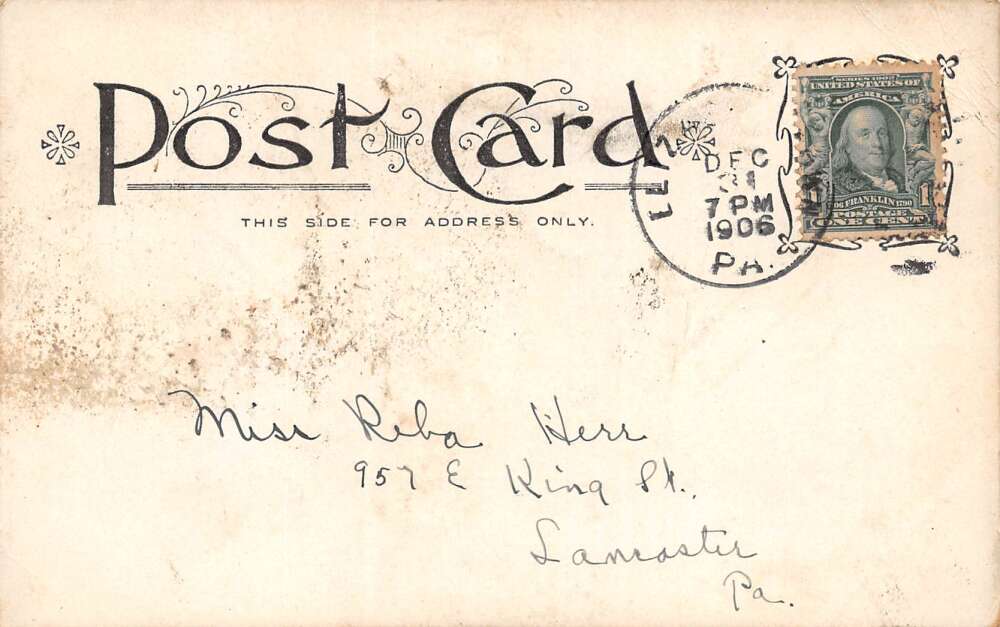 Post Card
THIS SIDE FOR ADDRESS ONLY.
DEC
31
7 PM
1906
PA.
SERIES 1902
UNITED STATES OF
AMERICA
FRANKLIN 1790
1
POSTAGE
ONE CENT
Miss Reba Herr
957 E King St.,
Lancaster
Pa.